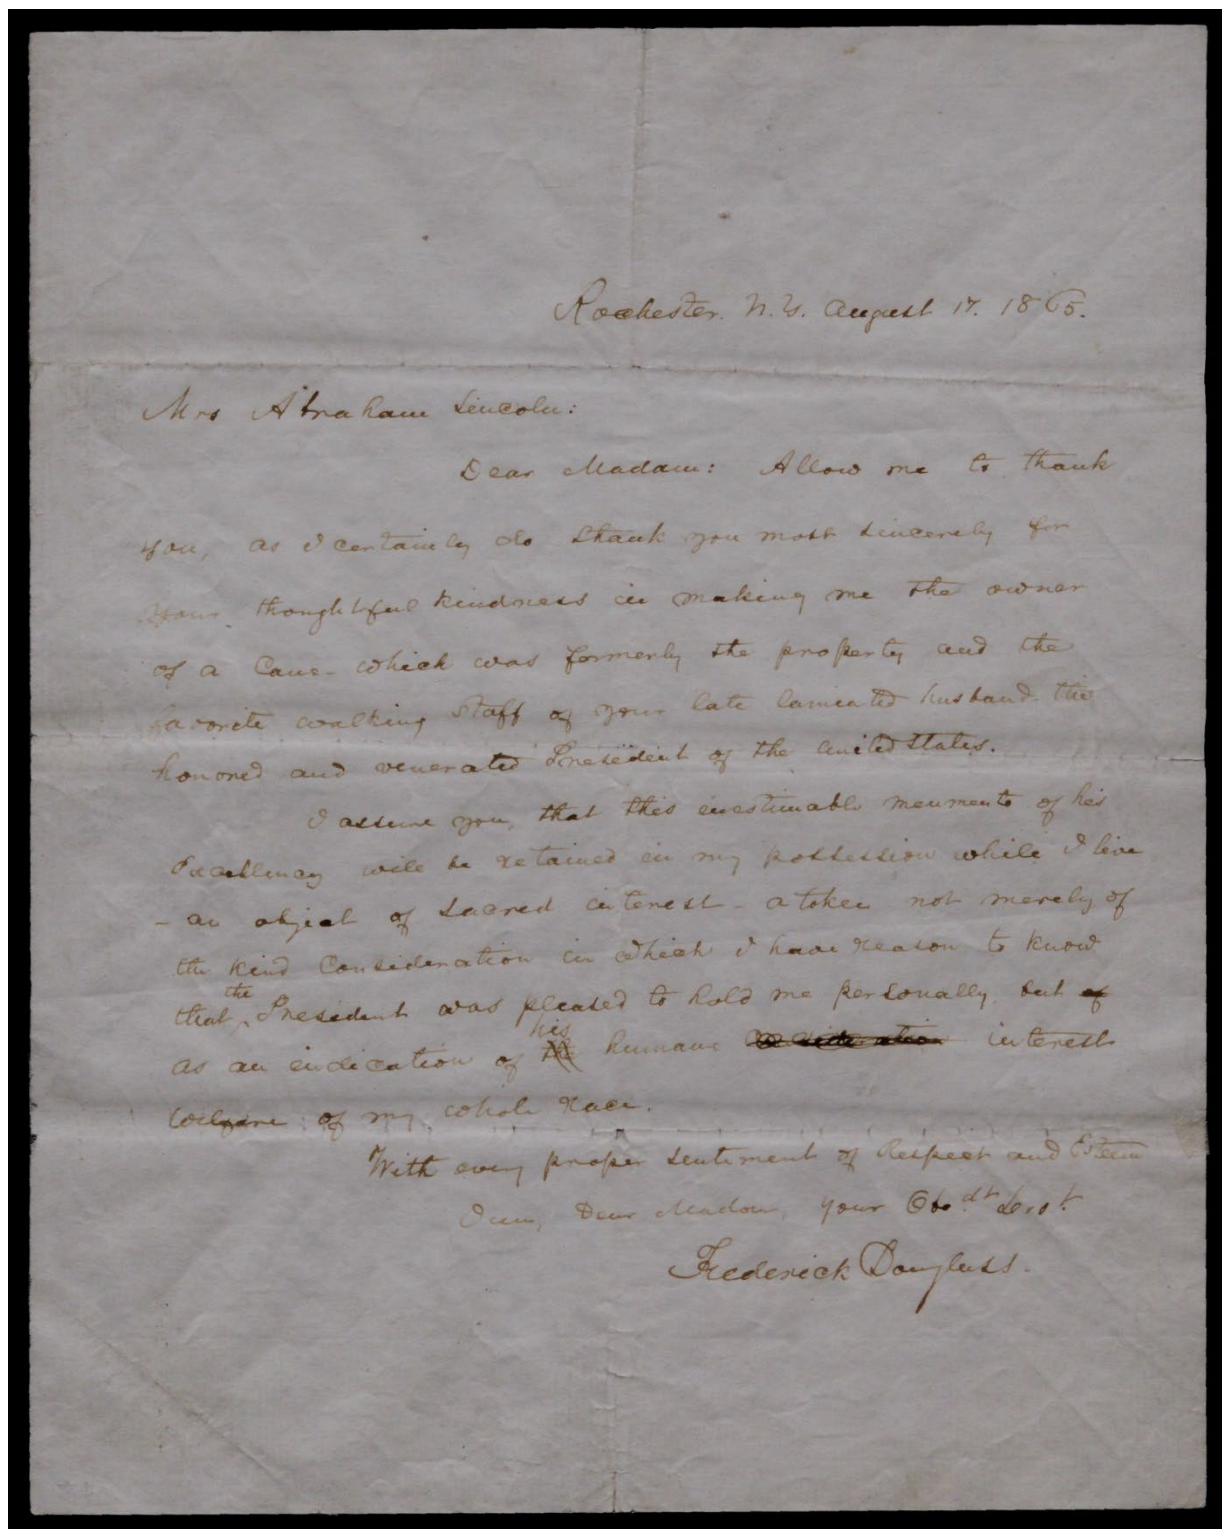 Rochester. N.Y. August 17. 1865.
Mrs Abraham Lincoln:
Dear Madam: Allow me to thank
you, as I certainly do thank you most sincerely for
your thoughtful kindness in making me the owner
of a Cane- which was formerly the property and the
favorite walking staff of your late lamented husband the
honored and venerated President of the United States.
I assure you, that this inestimable memento of his
Excellency will be retained in my possession while I live
- an object of sacred interest - a token not merely of
the kind Consideration in which I have reason to know
the
that President was pleased to hold me personally, but of
his
as an indication of humane consideration interest
welfare of my whole race.
With every proper sentiment of Respect and Esteem
I am, Dear Madam, your Obe.dt Servt.
Frederick Douglass.